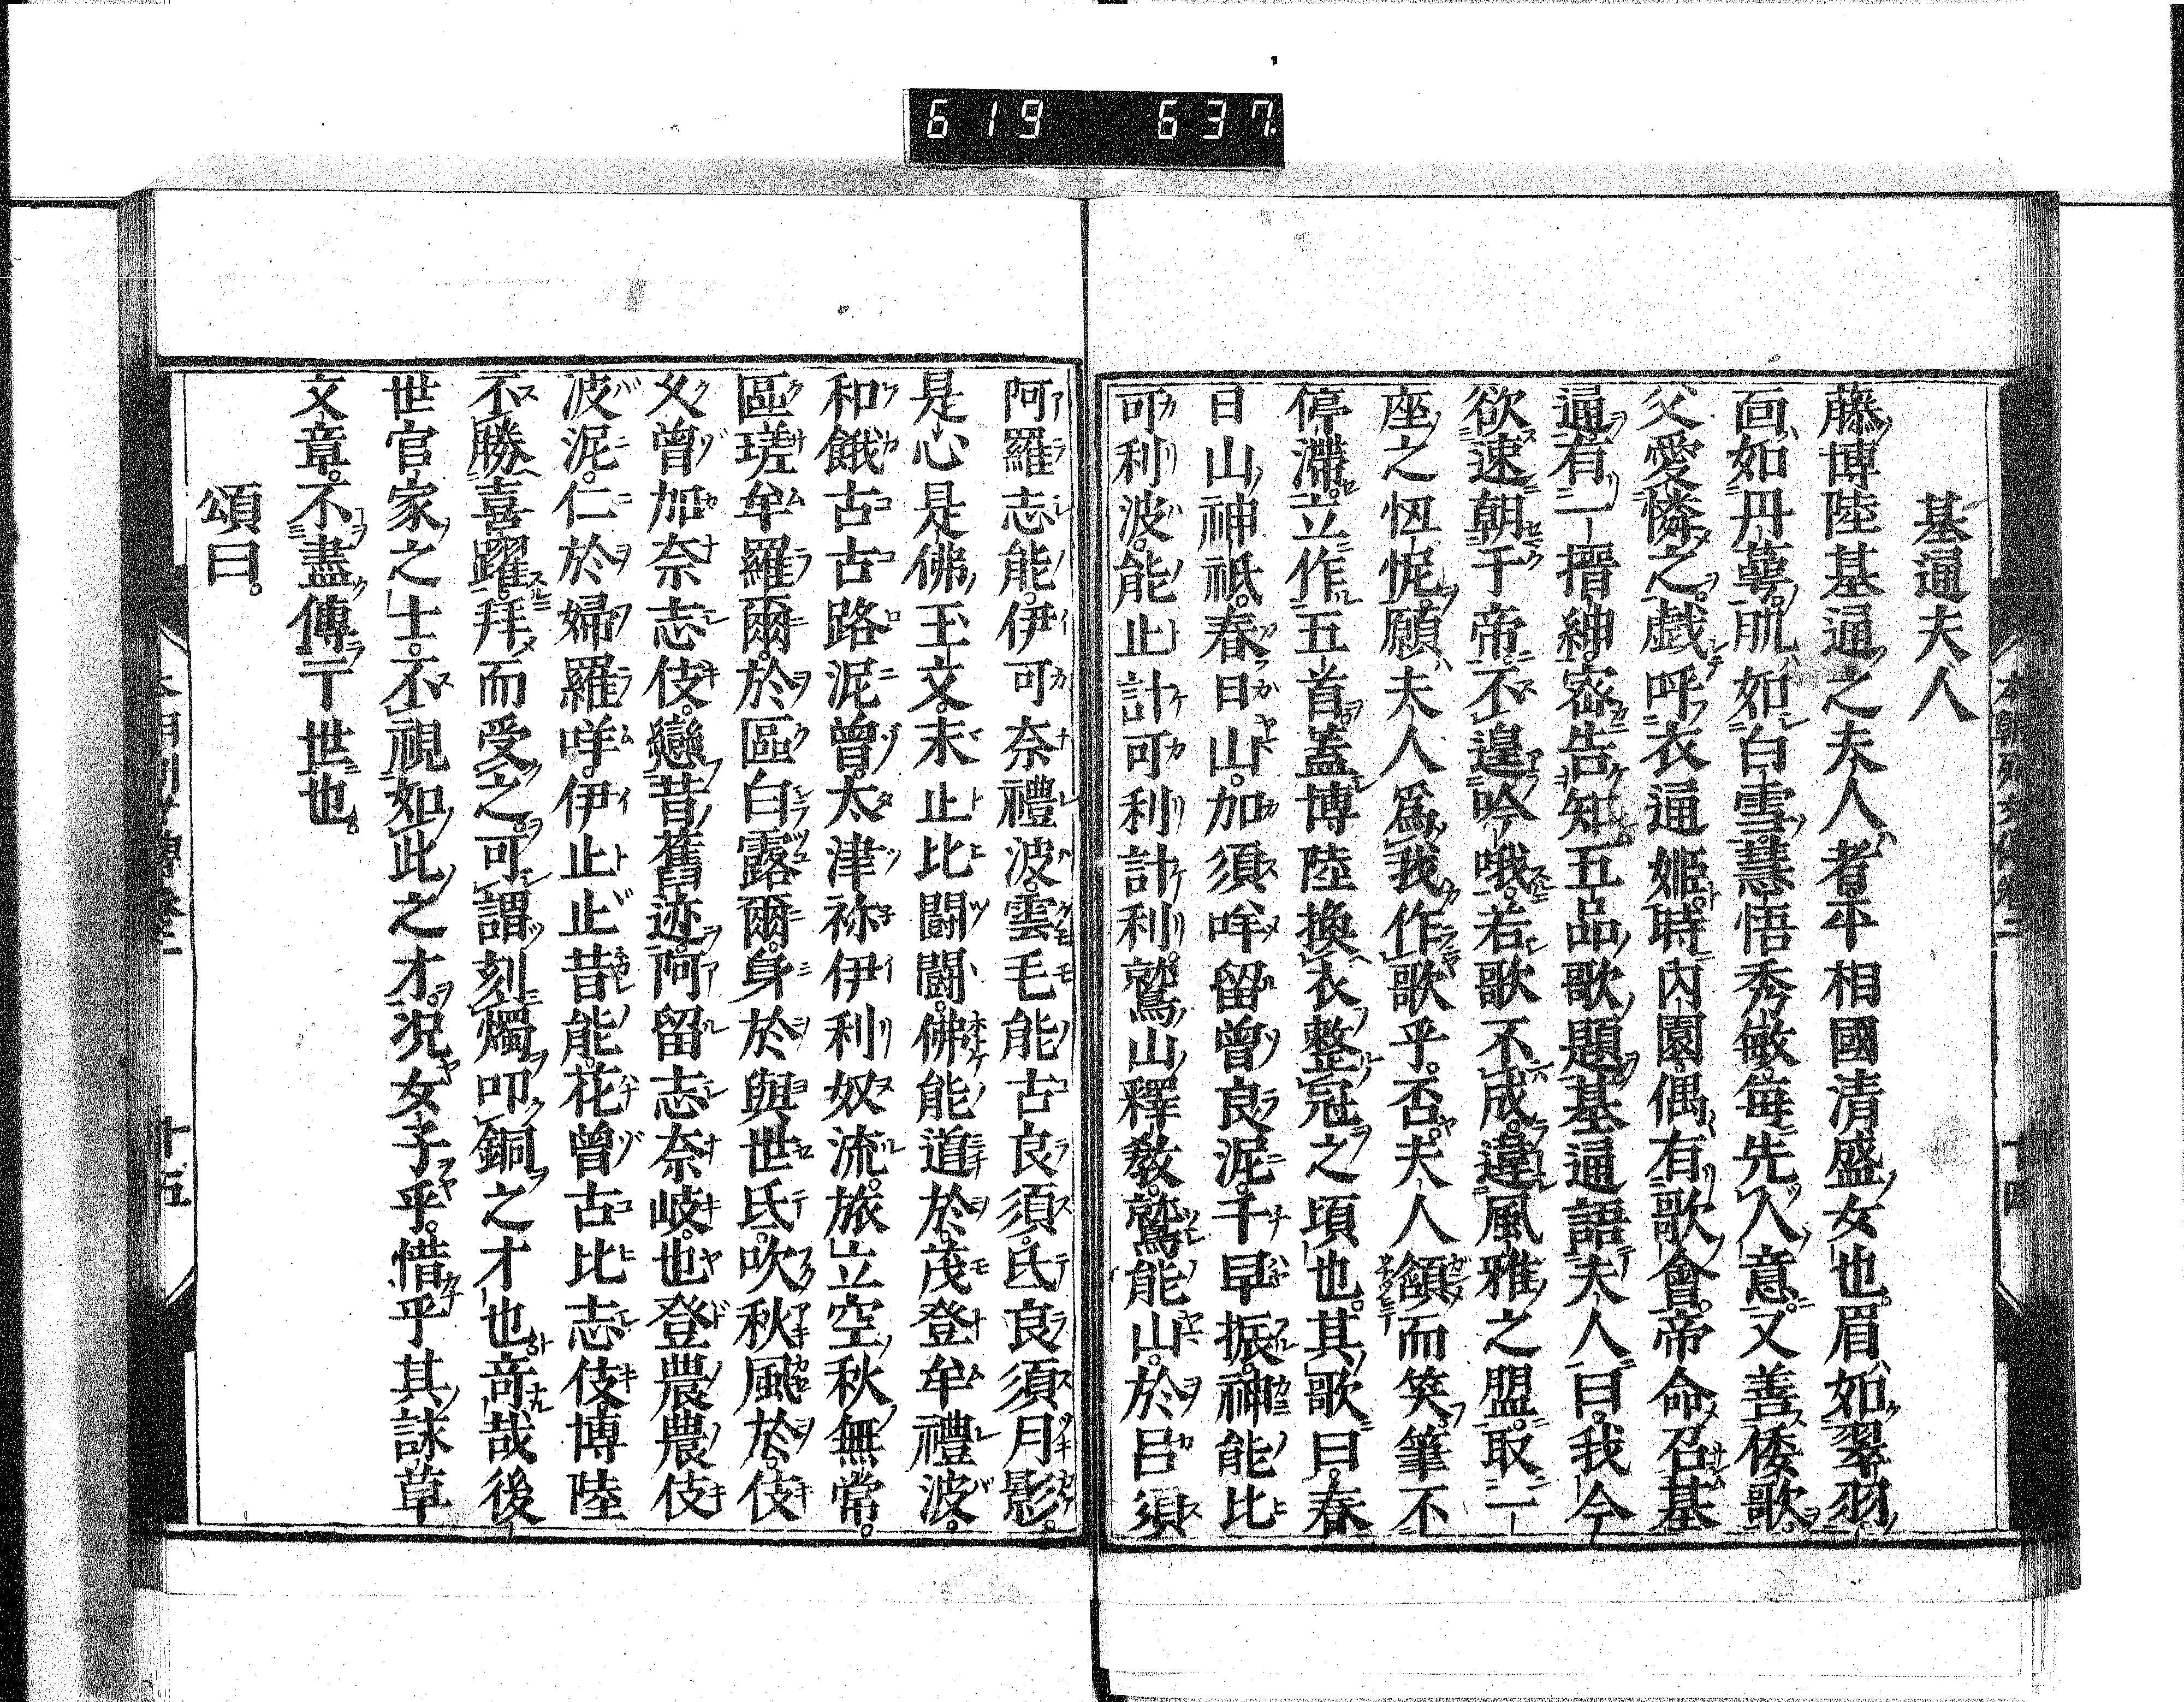 619 637.
基通夫人
藤博陸基通之夫人者平相國清盛女也。眉如翠羽
面如丹蕚。肌如白雪。慧悟秀敏。毎先人意。又善倭歌。
父愛憐之。戯呼衣通姫。時内園偶有歌會。帝命召基
通。有一搢紳。密告知五品歌題。基通語夫人曰。我今
欲速朝于帝。不遑吟哦。若歌不成。違風雅之盟。取一
座之忸怩。願夫人為我作歌乎。否。夫人頷而笑。筆不
停滯。立作五首。蓋博陸換衣整冠之頃也。其歌曰。春
日山神祇。春日山。加須哶留曾良泥。千早振。神能比
可利波。能止計可利計利。鷲山釋教。鷲能山。於呂須
阿羅志能。伊可奈禮波。雲毛能古良須。氐良須月影。
是心是佛王文。末止比闘闘。佛能道於。茂登牟禮波。
和餓古古路泥曾。太津祢伊利奴流。旅立空秋無常。
區瑳牟羅爾。於區白露爾。身於與世氐。吹秋風於。伎
久曾加奈志伎。戀昔舊迹。阿留志奈岐。也登農農伎
波泥。仁於婦羅哶。伊止止昔能。花曾古比志伎博陸
不勝喜躍。拜而受之。可謂刻燭叩銅之才也。竒哉後
世官家之士。不視如此之才。況女子乎。惜乎其詠草
文章。不盡傳于世也。
頌曰。
本朝列女傳巻三
十四
十五